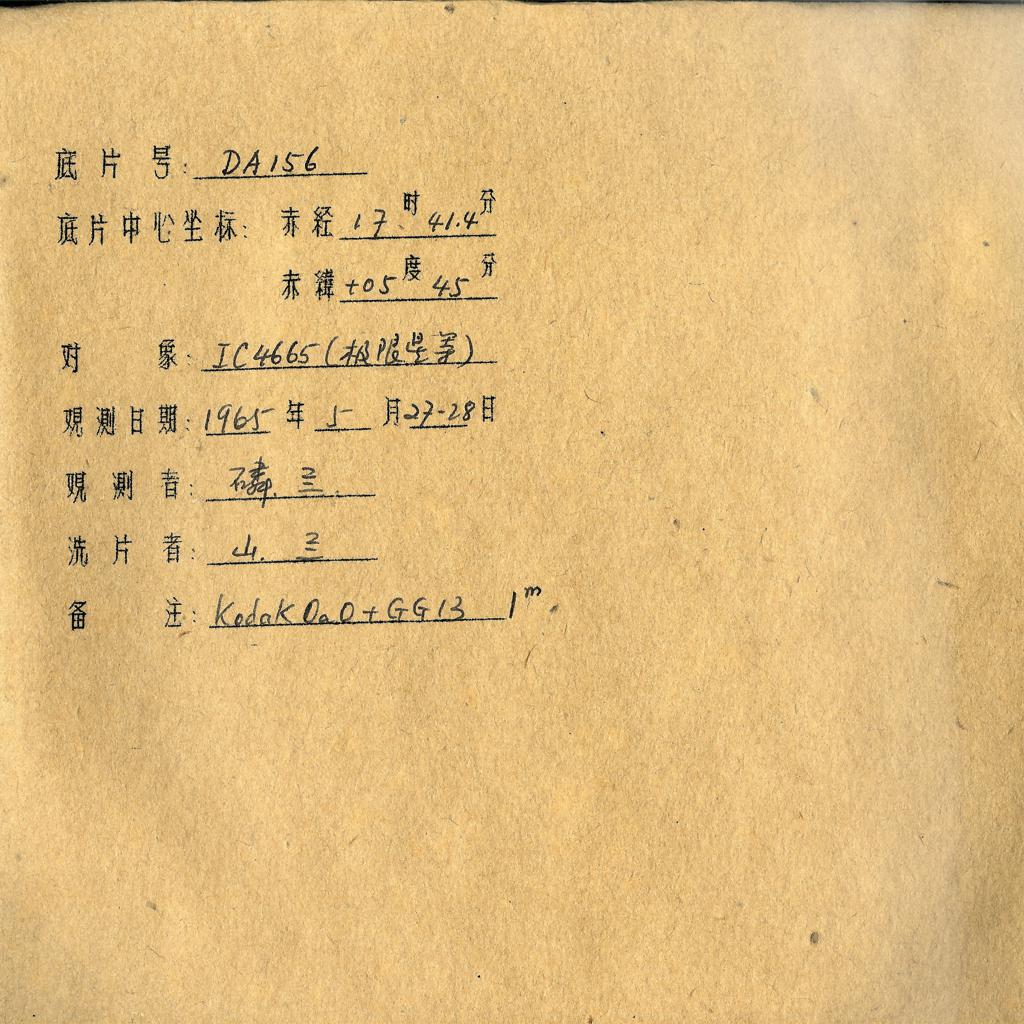 底片号: DA156
底片中心坐标: 赤经 17时 41.4分
赤緯 +05度 45分
对象: IC4665(极限星等)
观测日期: 1965年5月27-28日
观测者: 磷. 兰.
洗片者: 山. 兰
备注: Kodak OaO + GG13 1m.